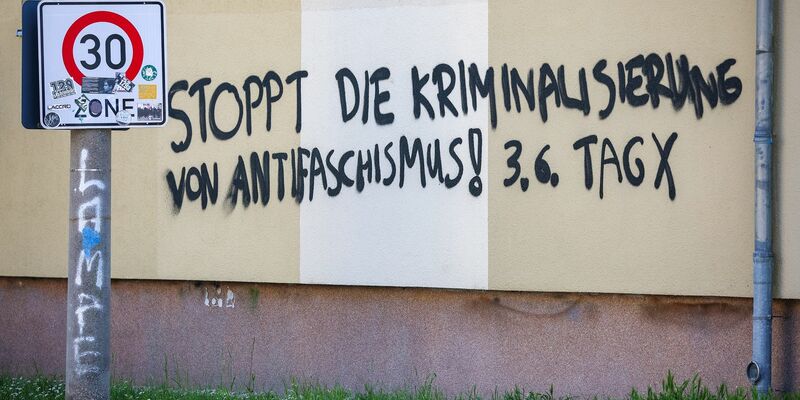 30
ZONE
LACCRO
STOPPT DIE KRIMINALISIERUNG
VON ANTIFASCHISMUS! 3.6. TAG X
LAMPE